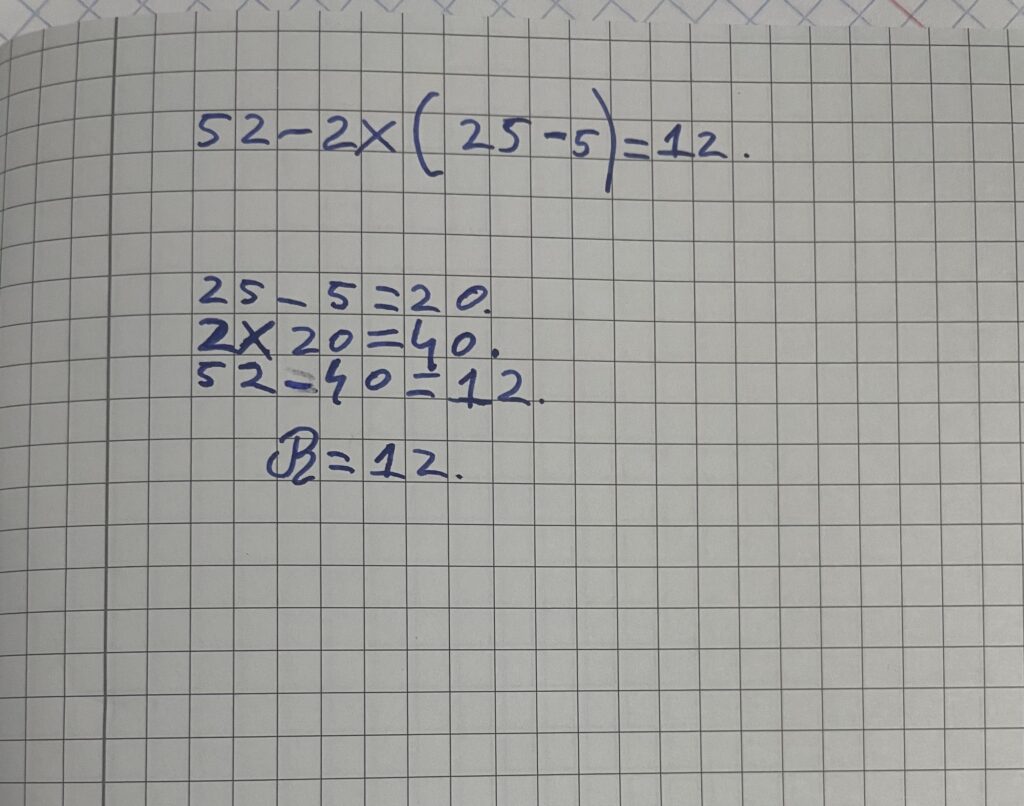 52-2×(25-5)=12.
25-5=20.
2×20=40.
52-40=12.
R=12.